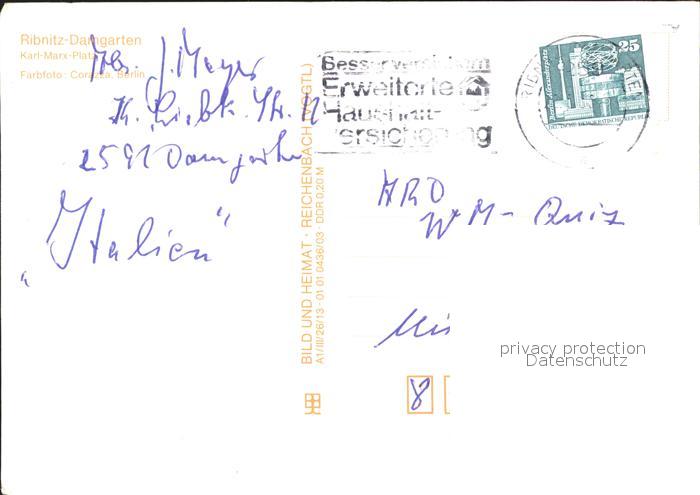 Ribnitz-Damgarten
Karl-Marx-Platz
Farbfoto: Corazza, Berlin
Abs. J. Meyer
K. Liebk. Str.
2591 Damgarten
„Italien“
BILD UND HEIMAT · REICHENBACH (VOGTL)
A1/III/26/13 · 01 01 0436/03 · DDR 0,20 M
Besser versichern
Erweiterte
Haushalt-
versicherung
25
DEUTSCHE DEMOKRATISCHE REPUBLIK
WM-Quiz
8
privacy protection
Datenschutz